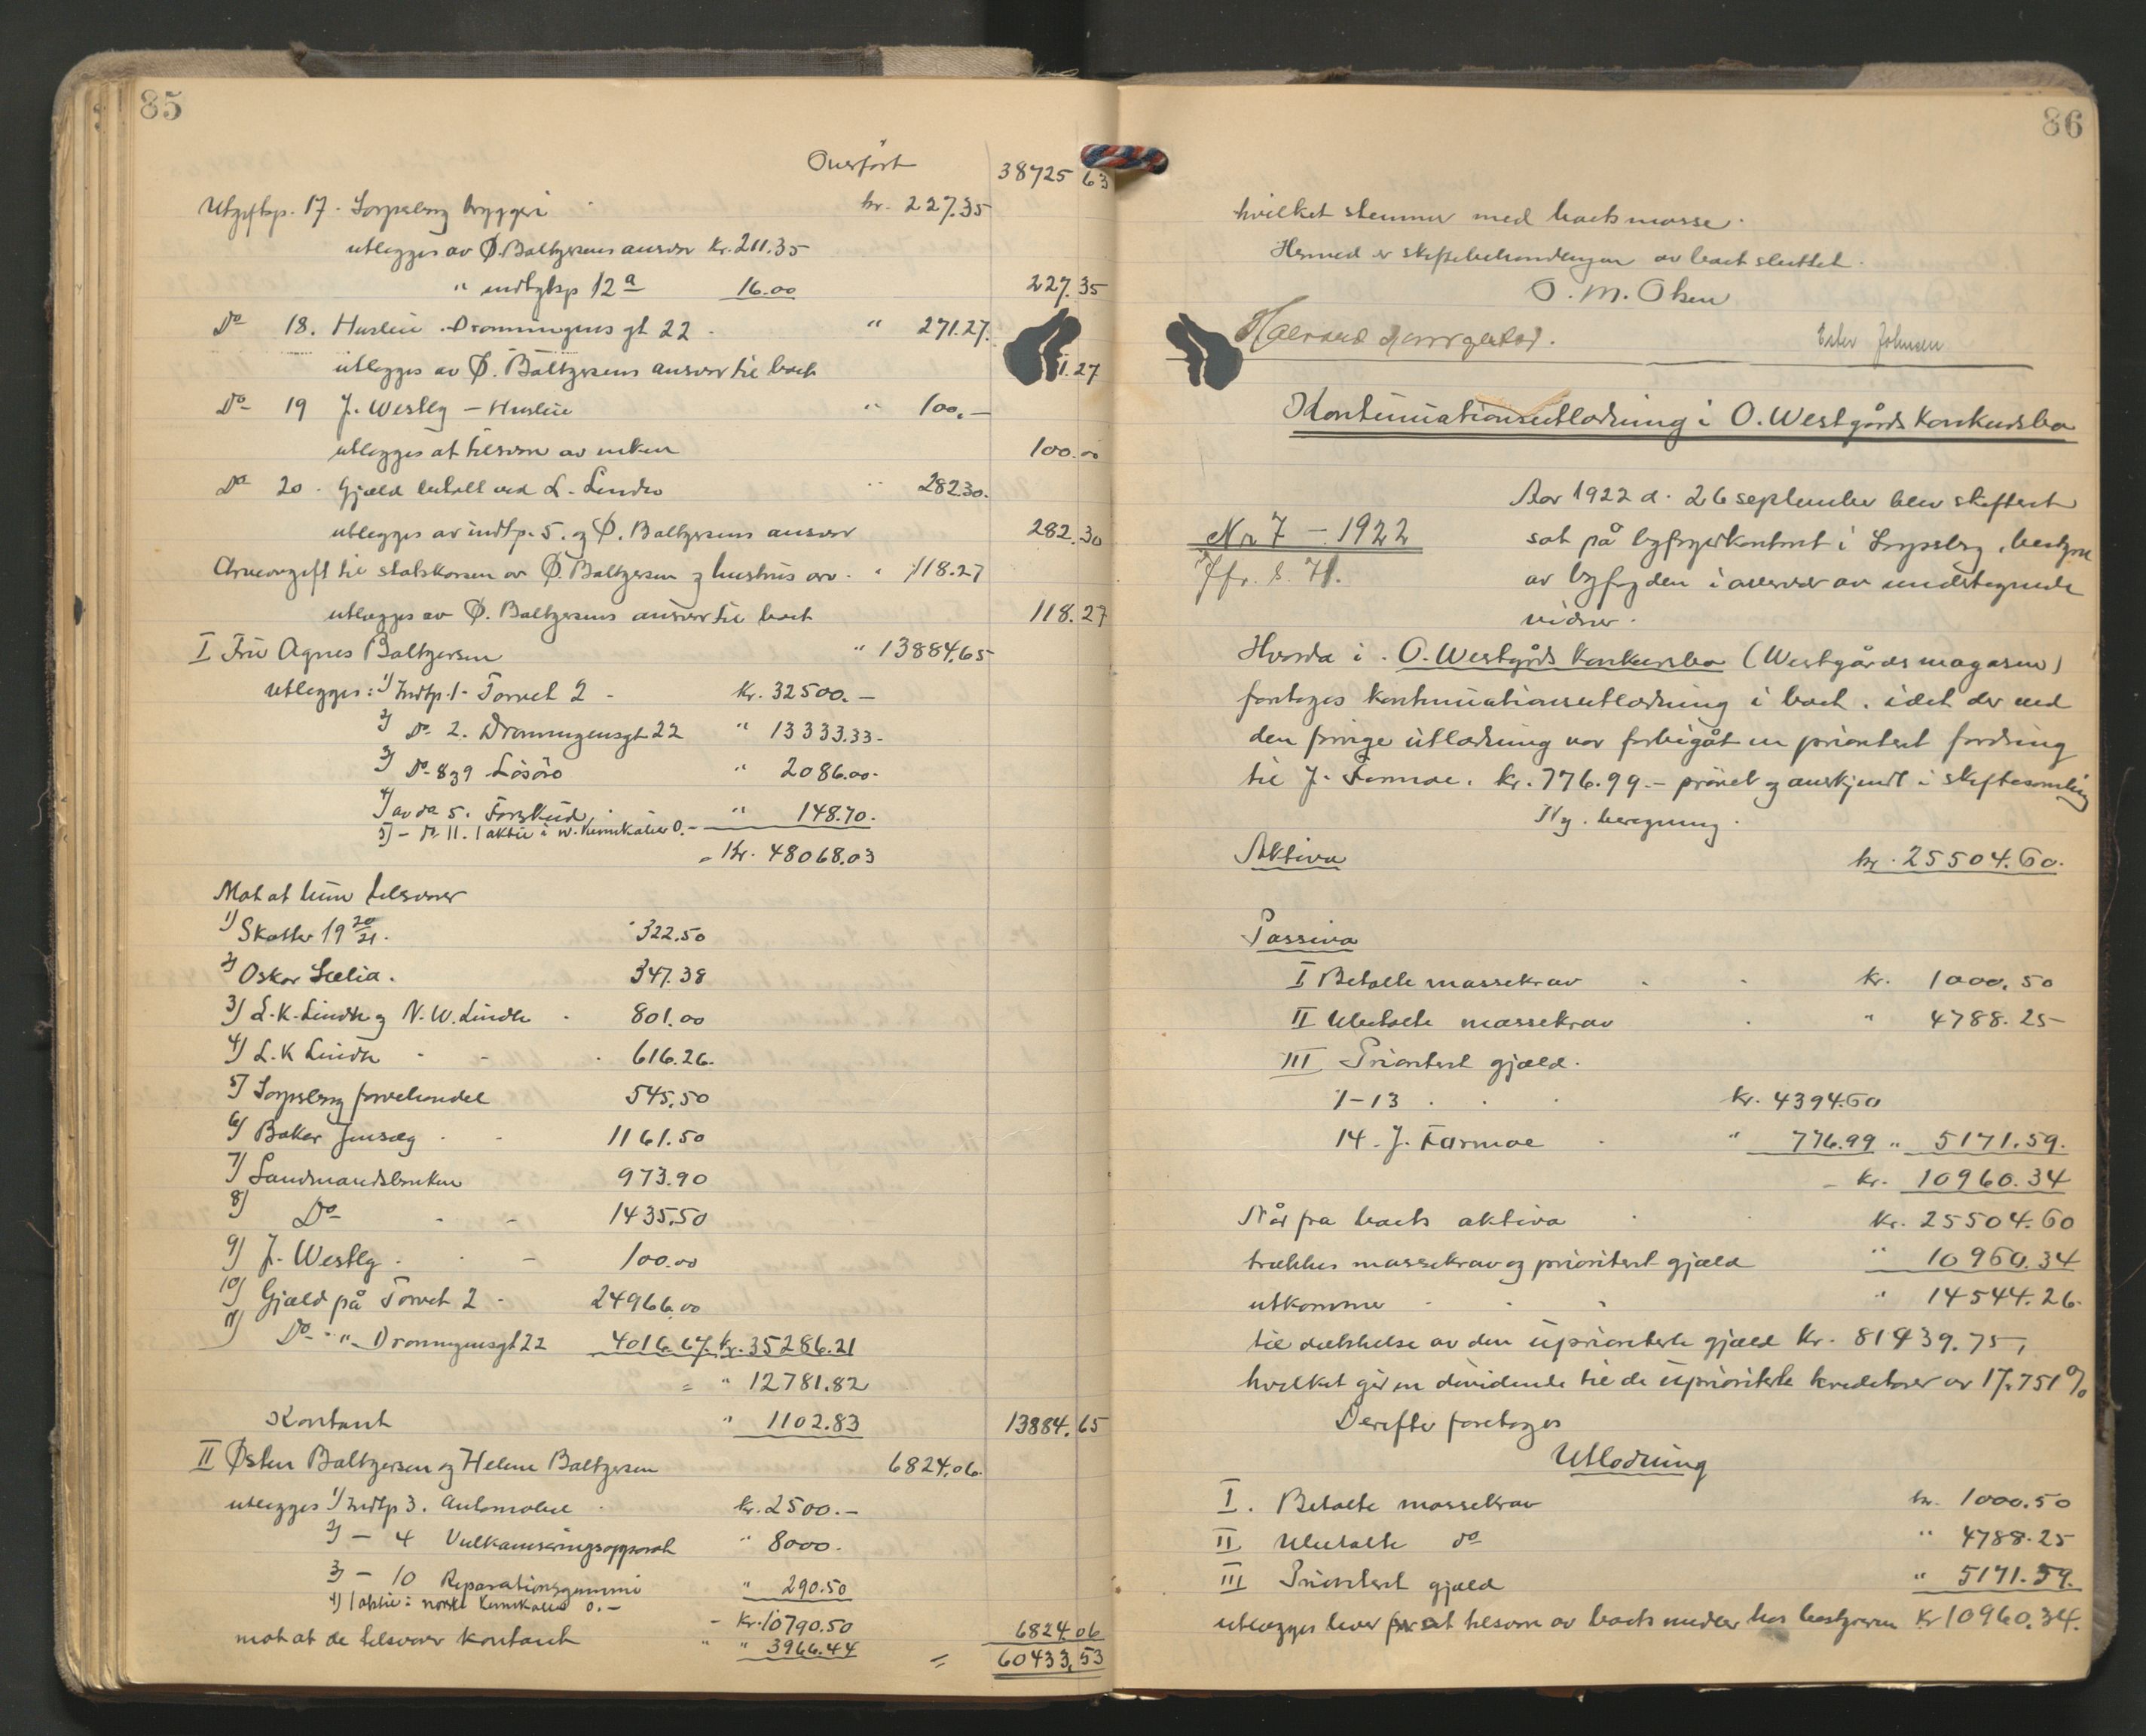 85
Overført 38725 63
Utgiftsp. 17. Sarpsborg bryggeri kr. 227.35
utlegges av Ø. Baltzersens ansvar kr. 211.35
" indtgtsp 12a 16.00 227.35
Do 18. Husleie Dronningens gt 22 " 271.27.
utlegges av Ø. Baltzersens ansvar til boet 1.27
Do 19 J. Westby – Husleie " 100.–
utlegges at tilsvare av enken 100.00
Do 20. Gjæld betalt ved L. Lindto " 282.30.
utlegges av indtp. 5. og Ø. Baltzersens ansvar 282.30
Arveavgift til statskassen av Ø. Baltzersen og hustrus arv. " 118.27
utlegges av Ø. Baltzersens ansvar til boet 118.27
I Fru Agnes Baltzersen " 13884.65
utlegges: 1) Indtp. 1 - Torvet 2 - kr. 32500.–
2) Do 2. Dronningensgt 22 " 13333.33-
3) Do 8 og 9 Løsøre " 2086.00-
4) av do 5. Forskud " 148.70.
5) – Do 11. 1 aktie i n. Kemikalier 0.–
= Kr. 48068.03
Mot at hun tilsvarer
1) Skatter 19 20/21. 322.50
2) Oskar Lælia. 347.38
3) L. K. Lindto og N. W. Lindto 801.00
4) L. K Lindto 616.26.
5) Sarpsborg farvehandel 545.50
6) Baker Jensæg 1161.50
7) Landmandsbanken 973.90
8) Do 1435.50
9) J. Westby 100.00
10) Gjæld på Torvet 2 - 24966.00
11) Do " Dronningensgt 22 4016.67. kr. 35286.21
= " 12781.82
Kontant " 1102.83 13884.65
II Østen Baltzersen og Helene Baltzersen 6824.06.
utlegges 1) Indtp 3. Automobil kr. 2500.–
2) – 4 Vulkaniseringsapparat " 8000.
3) – 10 Reparationsgummi " 290.50
4) 1 aktie i norske Kemikalier 0.–
– Kr. 10790.50
mot at de tilsvarer kontant " 3966.44 6824.06
= 60433.53
86
hvilket stemmer med boets masse.
Hermed er skiftebehandlingen av boet sluttet.
O. M. Olsen
Ester Johnsen
Kontinuationsutlodning i O. Westgårds konkursbo
Aar 1922 d. 26 september blev skifteret
sat på byfogdkontoret i Sarpsborg, bestyret
av byfogden i overvær av undertegnede
vidner.
Nr 7 – 1922
Jfr. S. 71.
Hvorda i O. Westgårds konkursbo (Westgårds magasin)
foretages kontinuationsutlodning i boet, idet der ved
den forrige utlodning var forbigåt en prioritert fordring
til J. Farmoe, kr. 776.99.– prøvet og anerkjendt i skiftesamling
Ny beregning.
Aktiva kr. 25504.60.
Passiva
I Betalte massekrav kr. 1000.50
II Ubetalte massekrav " 4788.25–
III Prioritert gjæld.
1–13 kr. 4394.60
14. J. Farmoe " 776.99 " 5171.59.
– kr. 10960.34
Når fra boets aktiva kr. 25504.60
trækkes massekrav og prioritert gjæld " 10960.34
utkommer " 14544.26.
til dækkelse av den upriorterte gjæld kr. 81939.75,
hvilket gir en dividende til de upriorterte kreditorer av 17.751 %
Derefter foretages
Utlodning
I. Betalte massekrav kr. 1000.50
II Ubetalte do " 4788.25
III Prioritert gjæld " 5171.59.
utlægges hver for at tilsvare av boets midler hos bestyreren Kr 10960.34.